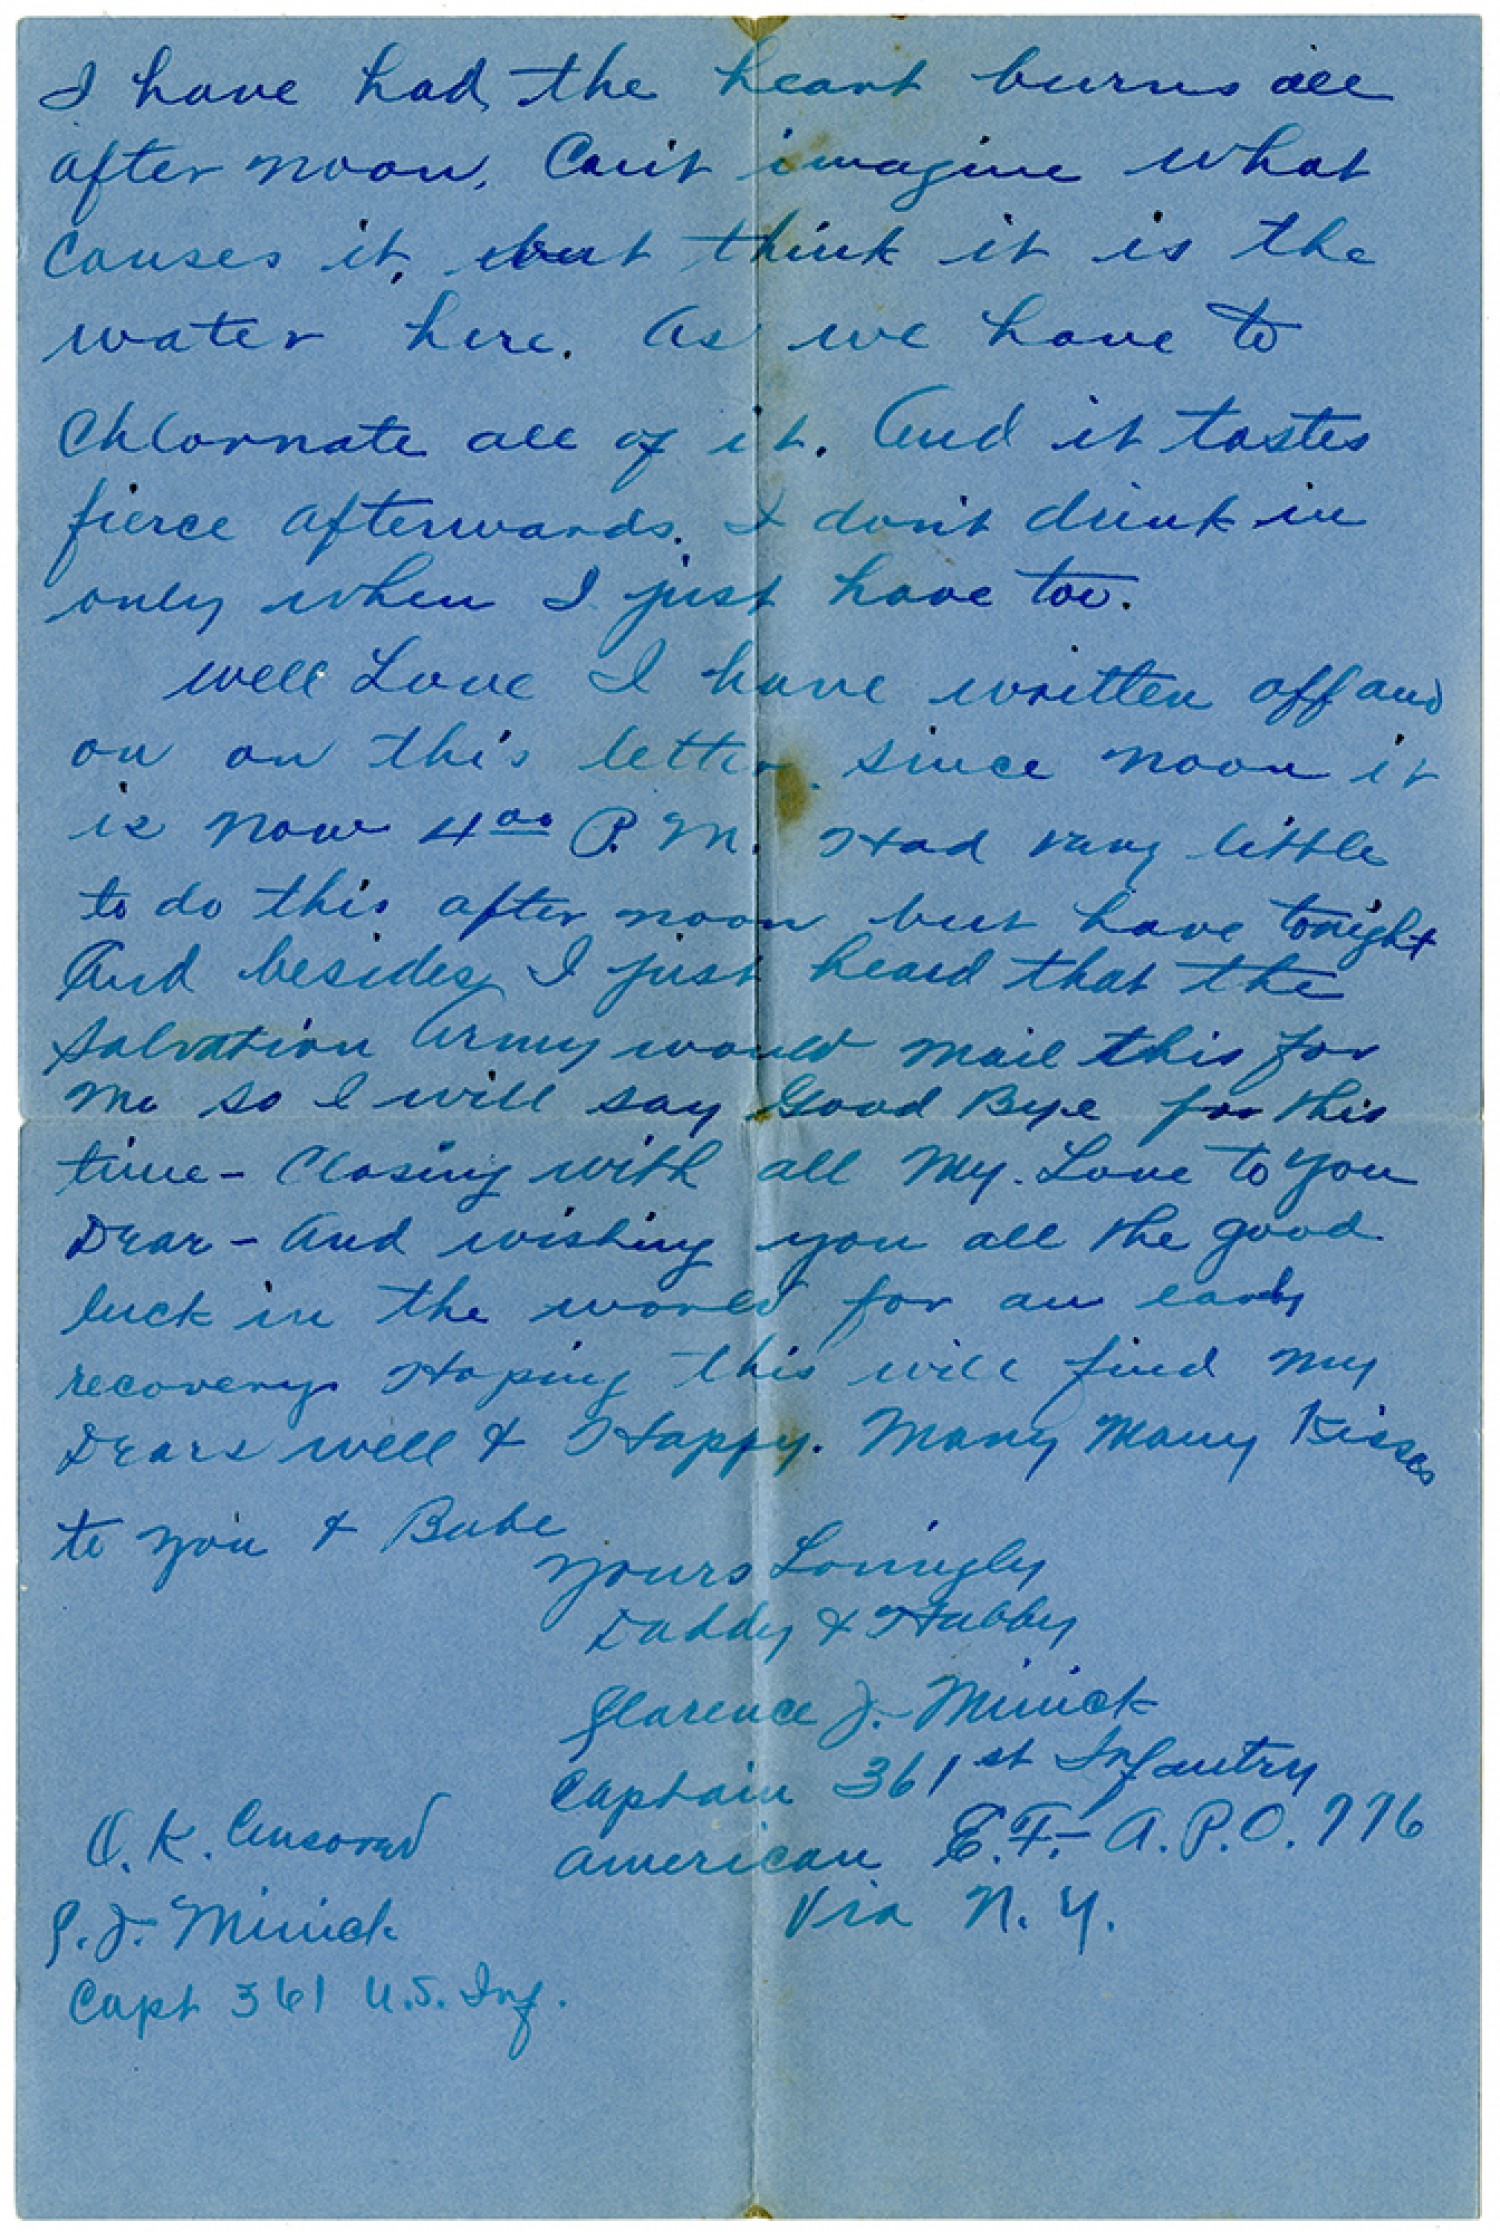 I have had the heart burns all
after noon, Can't imagine what
Causes it, but think it is the
water here. As we have to
Chlornate all of it. And it tastes
fierce afterwards. I don't drink in
only when I just have too.
Well Love I have written off and
on on this letter since noon it
is now 4⁰⁰ P.M. Had very little
to do this after noon but have tonight
And besides I just heard that the
Salvation Army would mail this for
me so I will say Good Bye for this
time - Closing with all My Love to you
Dear - And wishing you all the good
luck in the world for an early
recovery. Hoping this will find my
Dears well & Happy. Many Many Kisses
to you & Babe
Yours Lovingly
Daddy & Hubby
Clarence J. Minick
Captain 361st Infantry
American E.F. - A.P.O. 776
Via N.Y.
O.K. Censored
C.J. Minick
Capt 361 U.S. Inf.